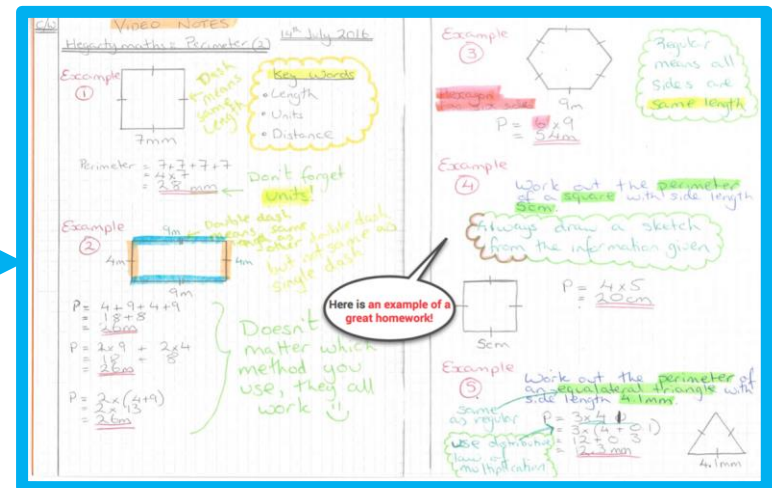 c/w
VIDEO NOTES
Hegarty maths: Perimeter (2)
14th July 2016
Example
1
Dash
means
same
Length
7mm
Key words
• Length
• Units
• Distance
Perimeter = 7+7+7+7
= 4 x 7
= 28 mm
Don't forget
units!
Example
2
9m
Double dash
means same
as other double dash
but not same as
single dash
4m
4m
9m
P = 4+9+4+9
= 18+8
= 26m
P = 2x9 + 2x4
= 18 + 8
= 26m
P = 2x(4+9)
= 2 x 13
= 26m
Doesn't
matter which
method you
use, they all
work
Here is an example of a
great homework!
Example
3
Regular
means all
sides are
same length
Hexagon
has six sides
9m
P = 6 x 9
= 54m
Example
4
Work out the perimeter
of a square with side length
5cm.
Always draw a sketch
from the information given
5cm
P = 4 x 5
= 20cm
Example
5
Work out the perimeter of
an equalateral triangle with
side length 4.1mm.
same
as regular
P = 3x4.1
= 3x(4+0.1)
= 12+0.3
= 12.3mm
use distributive
law of
multiplication
4.1mm